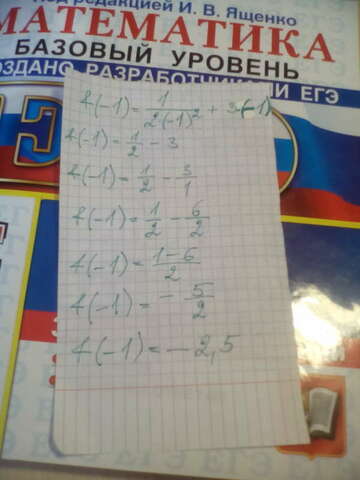 Под редакцией И. В. Ященко
МАТЕМАТИКА
БАЗОВЫЙ УРОВЕНЬ
СОЗДАНО РАЗРАБОТЧИКАМИ ЕГЭ
f(-1) = 1/(2·(-1)²) + 3(-1)
f(-1) = 1/2 - 3
f(-1) = 1/2 - 3/1
f(-1) = 1/2 - 6/2
f(-1) = (1-6)/2
f(-1) = - 5/2
f(-1) = - 2,5